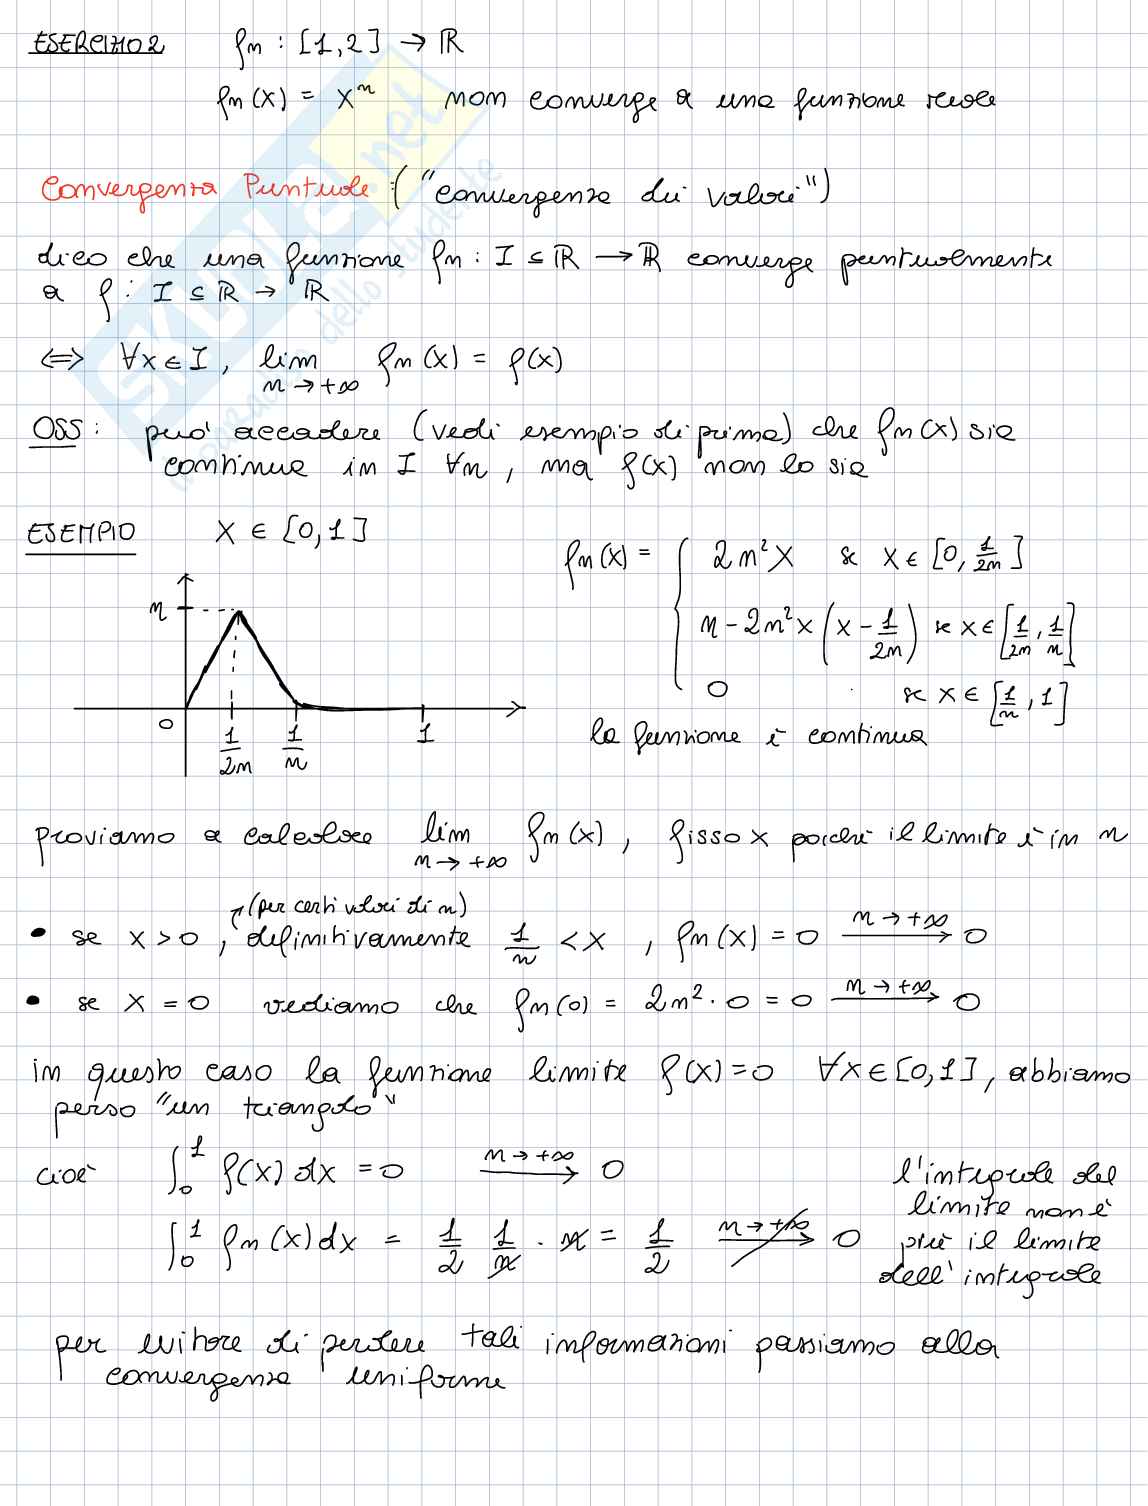 ESERCIZIO 2 fn : [1,2] → ℝ
fn(x) = xⁿ non converge a una funzione reale
Convergenza Puntuale : ("convergenza dei valori")
dico che una funzione fn : I ⊆ ℝ → ℝ converge puntualmente
a f : I ⊆ ℝ → ℝ
⟺ ∀x ∈ I, lim n→+∞ fn(x) = f(x)
OSS : può accadere (vedi esempio di prima) che fn(x) sia
continua in I ∀n, ma f(x) non lo sia
ESEMPIO x ∈ [0,1]
fn(x) = { 2n²x se x ∈ [0, 1/2n]
n - 2n²x (x - 1/2n) se x ∈ [1/2n, 1/n]
0 se x ∈ [1/n, 1]
n
0 1/2n 1/n 1
la funzione è continua
proviamo a calcolare lim n→+∞ fn(x), fisso x poiché il limite è in n
(per certi valori di n)
• se x > 0, definitivamente 1/n < x, fn(x) = 0 n→+∞ → 0
• se x = 0 vediamo che fn(0) = 2n² · 0 = 0 n→+∞ → 0
in questo caso la funzione limite f(x) = 0 ∀x ∈ [0,1], abbiamo
perso "un triangolo"
cioè ∫₀¹ f(x) dx = 0 n→+∞ → 0
∫₀¹ fn(x) dx = 1/2 1/n · n = 1/2 n→+∞ ↛ 0
l'integrale del
limite non è
più il limite
dell'integrale
per evitare di perdere tali informazioni passiamo alla
convergenza uniforme
SKUOLA.net
il paradiso dello studente